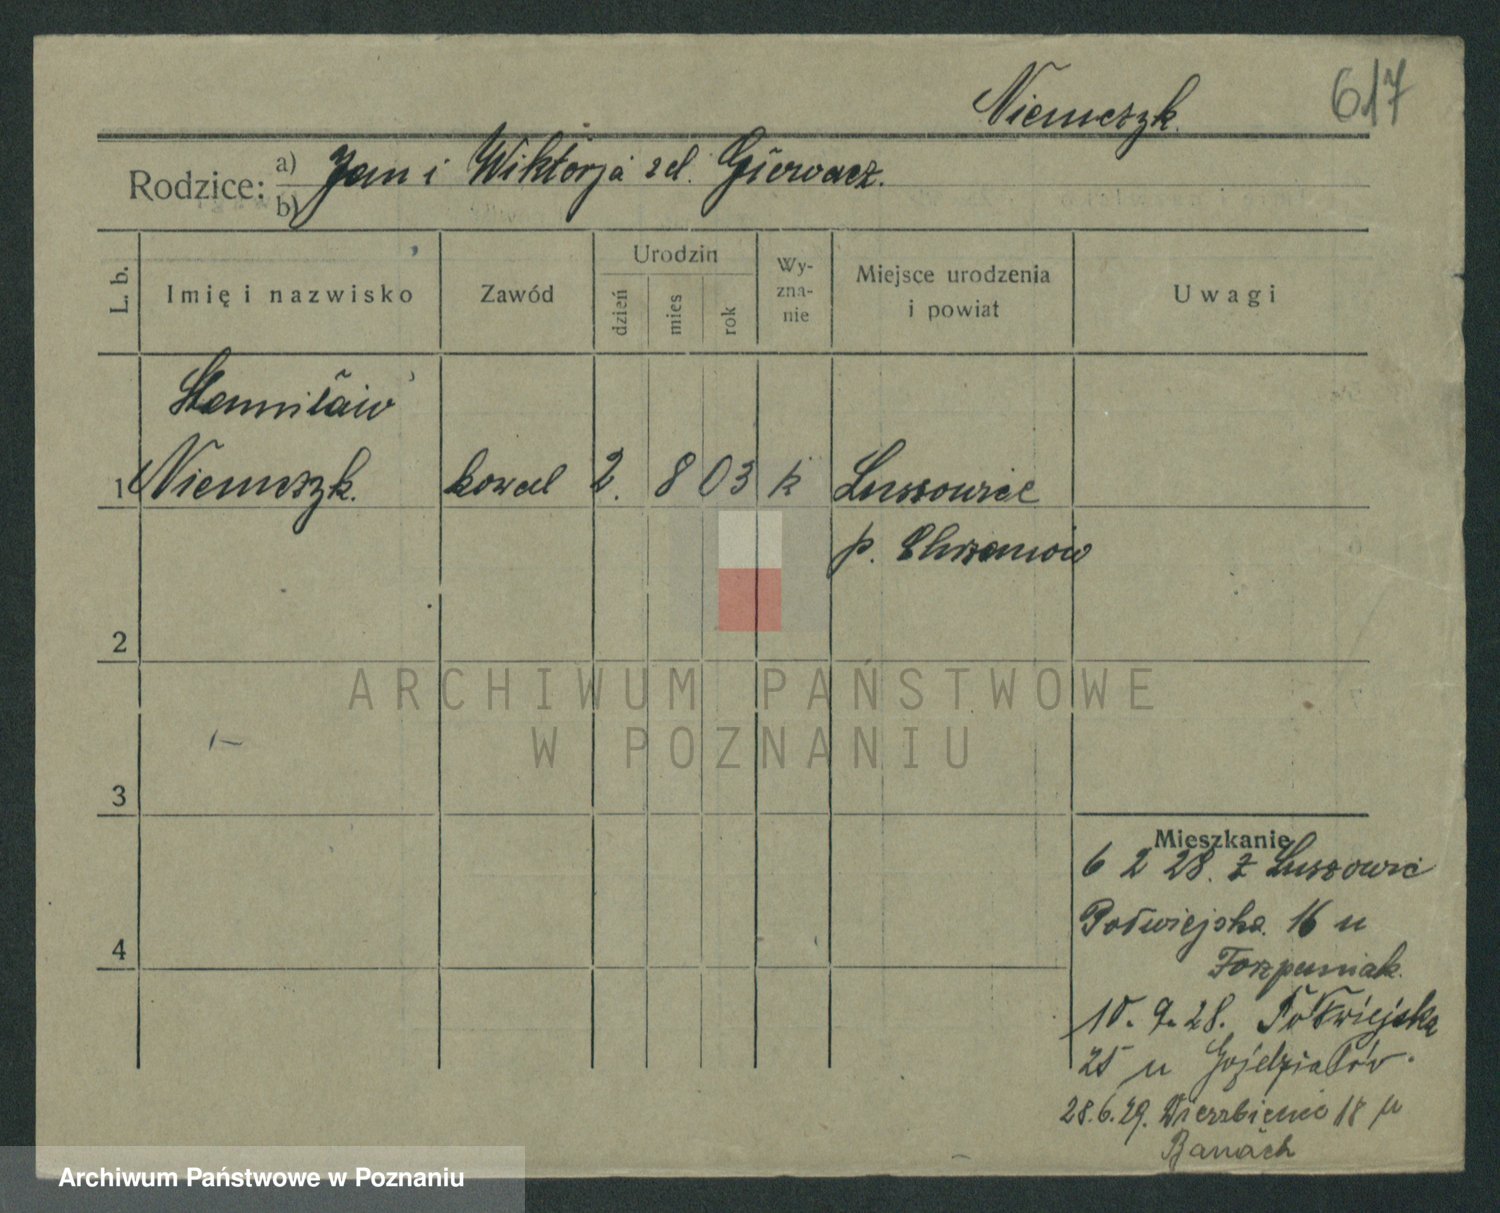 Niemczyk.
617
Rodzice: a) Jan i Wiktorja zd. Gierwacz.
b)
L. b.
Imię i nazwisko
Zawód
Urodzin
dzień
mies
rok
Wy-
zna-
nie
Miejsce urodzenia
i powiat
Uwagi
Stanisław
1 Niemczyk. kowal 2. 8 03 k Luszowice
p. Chrzanów
2
ARCHIWUM PAŃSTWOWE
W POZNANIU
3
Mieszkanie
6 2 28. z Luszowic
Półwiejska. 16 u
4
10. 9. 28. Półwiejska
25 u
28.6.29. Wierzbięcice 18 u
Banach
Archiwum Państwowe w Poznaniu